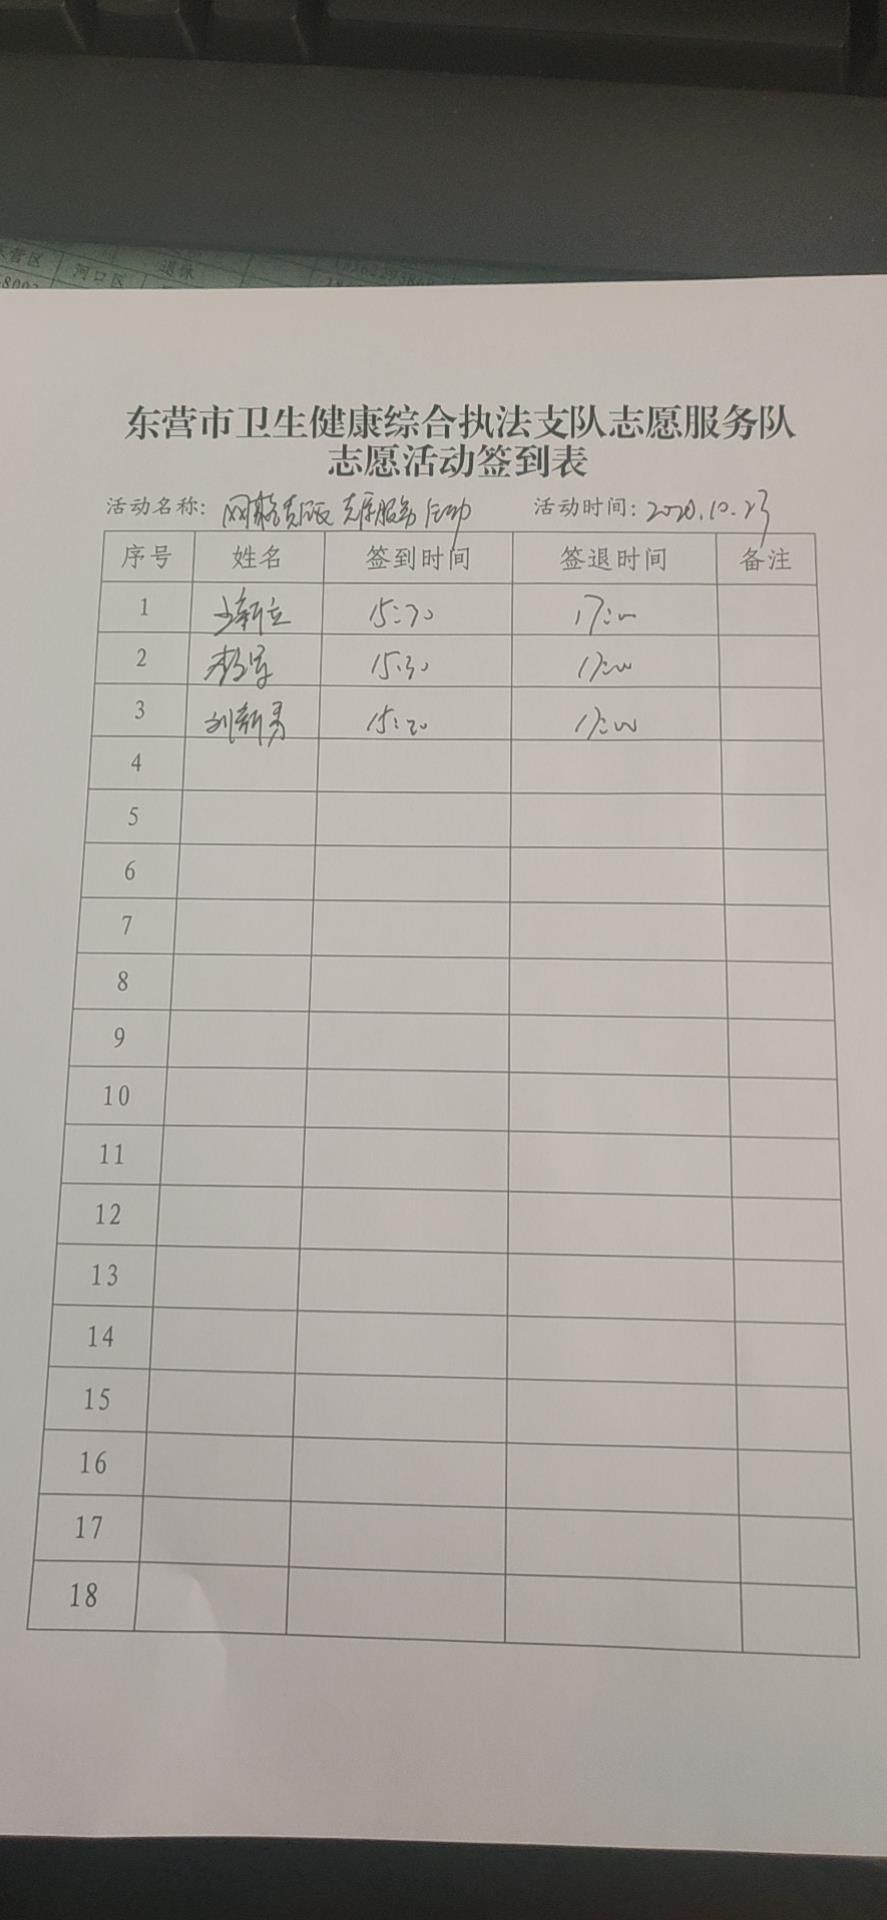 营区 河口区 退休
东营市卫生健康综合执法支队志愿服务队
志愿活动签到表
活动名称: 志愿服务活动 活动时间: 2020.10.23
序号 姓名 签到时间 签退时间 备注
1 15:30 17:00
2 15:30 17:00
3 刘新勇 15:20 17:00
4
5
6
7
8
9
10
11
12
13
14
15
16
17
18